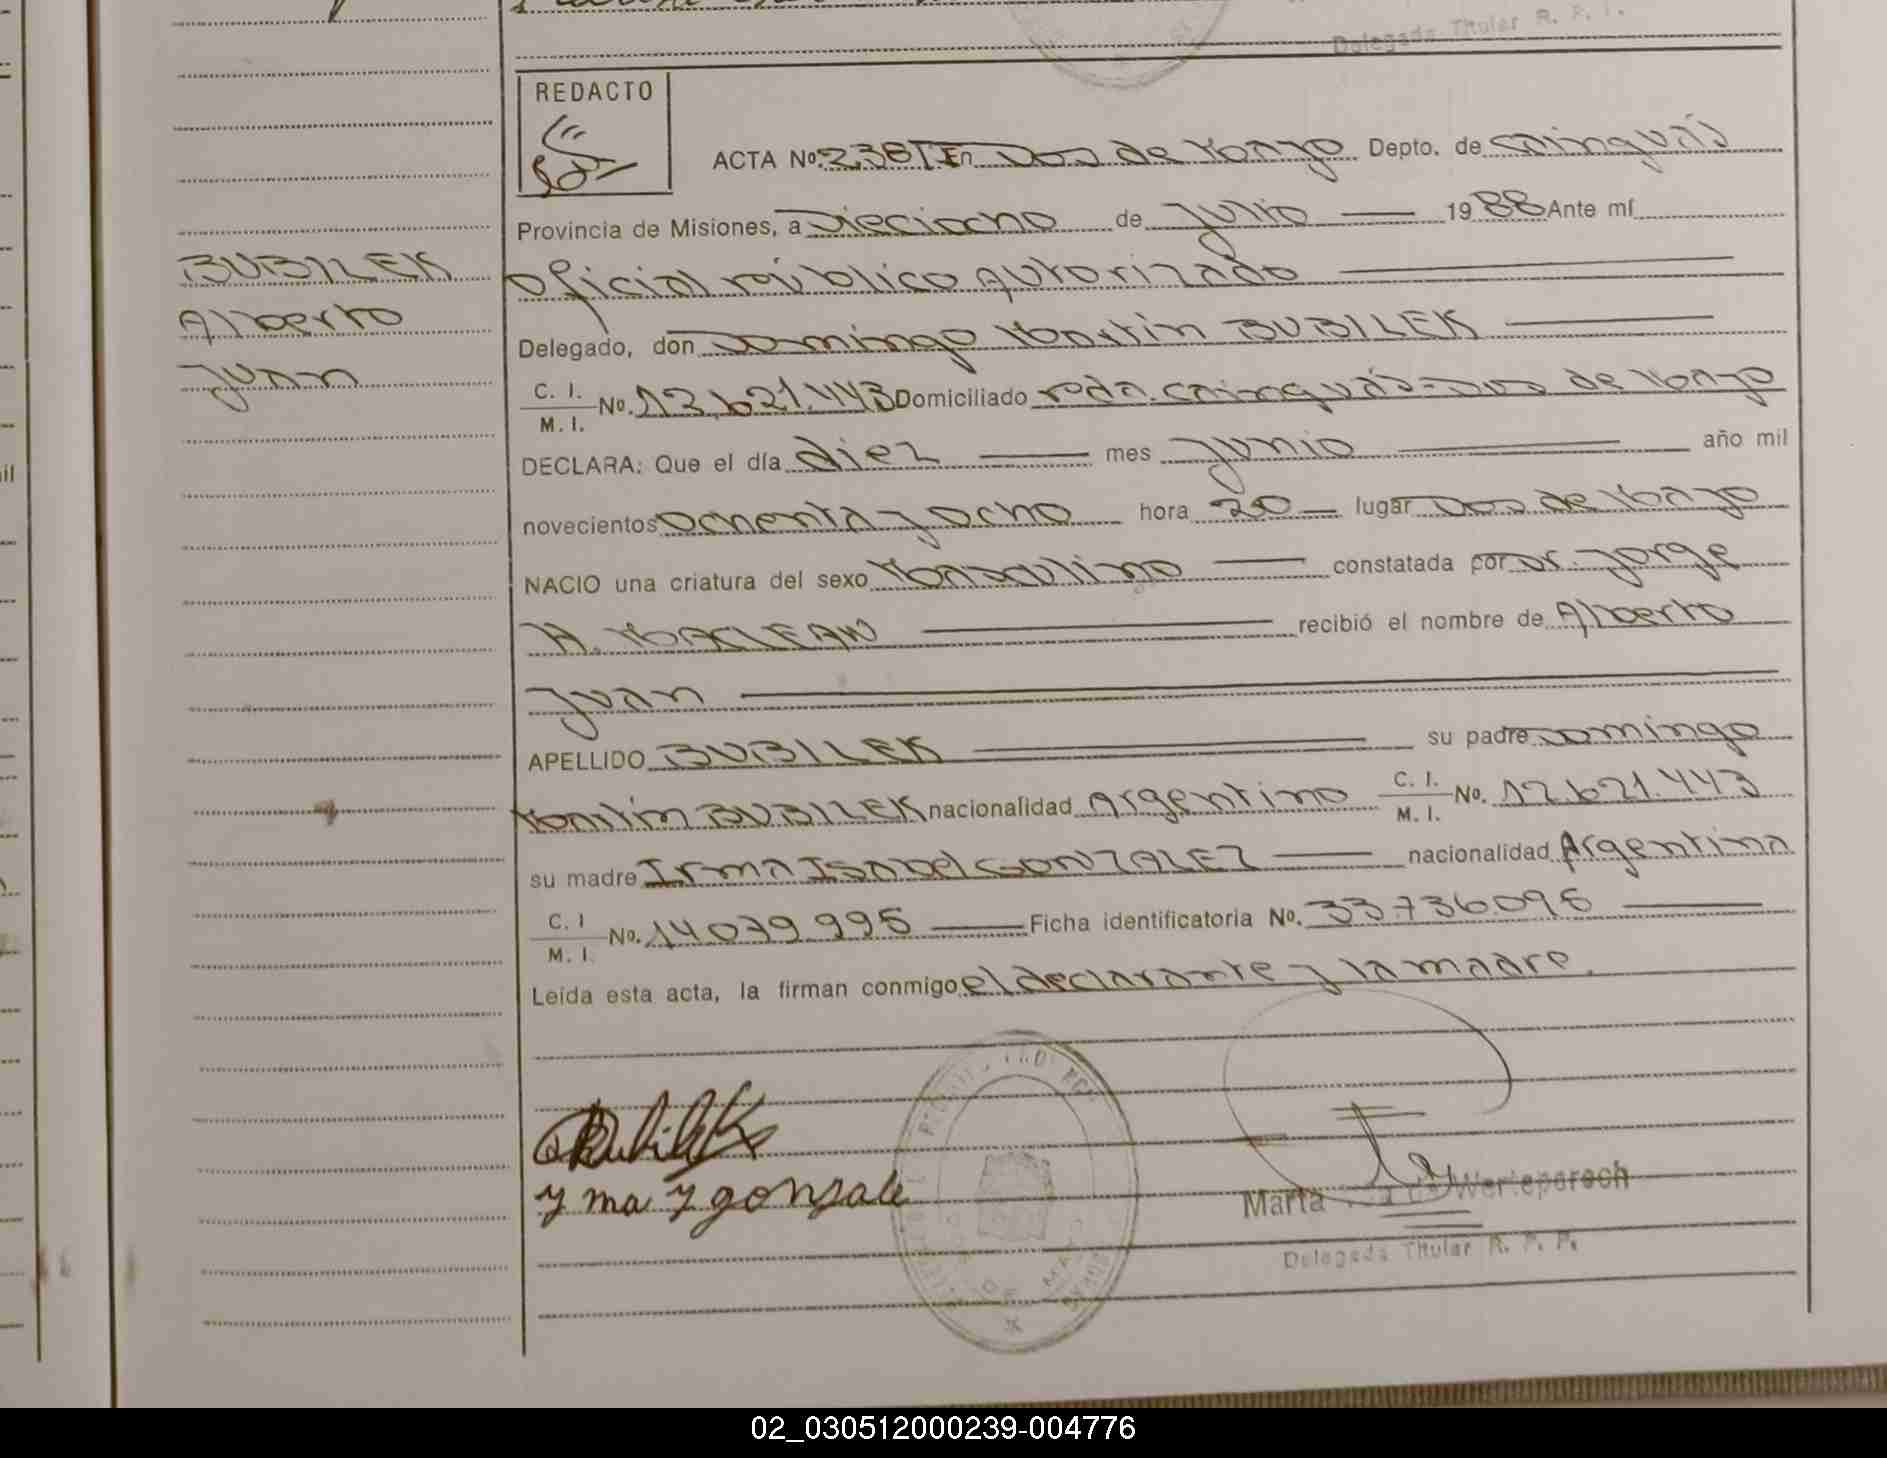 Delegada Titular R. P. P.
REDACTO
ACTA No. 238 T I En Dos de Mayo Depto. de Cainguás
Provincia de Misiones, a Dieciocho de Julio 19 88 Ante mí
Oficial público Autorizado
BUBILEK
Alberto
Juan
Delegado, don Domingo Martín BUBILEK
C. I.
M. I. No. 12.621.443 Domiciliado Pcda. Cainguás-Dos de Mayo
DECLARA: Que el día diez mes Junio año mil
novecientos ochenta y ocho hora 20 lugar Dos de Mayo
NACIO una criatura del sexo Masculino constatada por Dr. Jorge
H. MACLEAN recibió el nombre de Alberto
Juan
APELLIDO BUBILEK su padre Domingo
Martín BUBILEK nacionalidad Argentino C. I. M. I. No. 12.621.443
su madre Irma Isabel GONZALEZ nacionalidad Argentina
C. I
M. I. No. 14.079.995 Ficha identificatoria No. 33.736.096
Leída esta acta, la firman conmigo el declarante y la madre.
Bubilek
Yma Y gonzale
Marta Werleparech
Delegada Titular R. P. P.
02_030512000239-004776